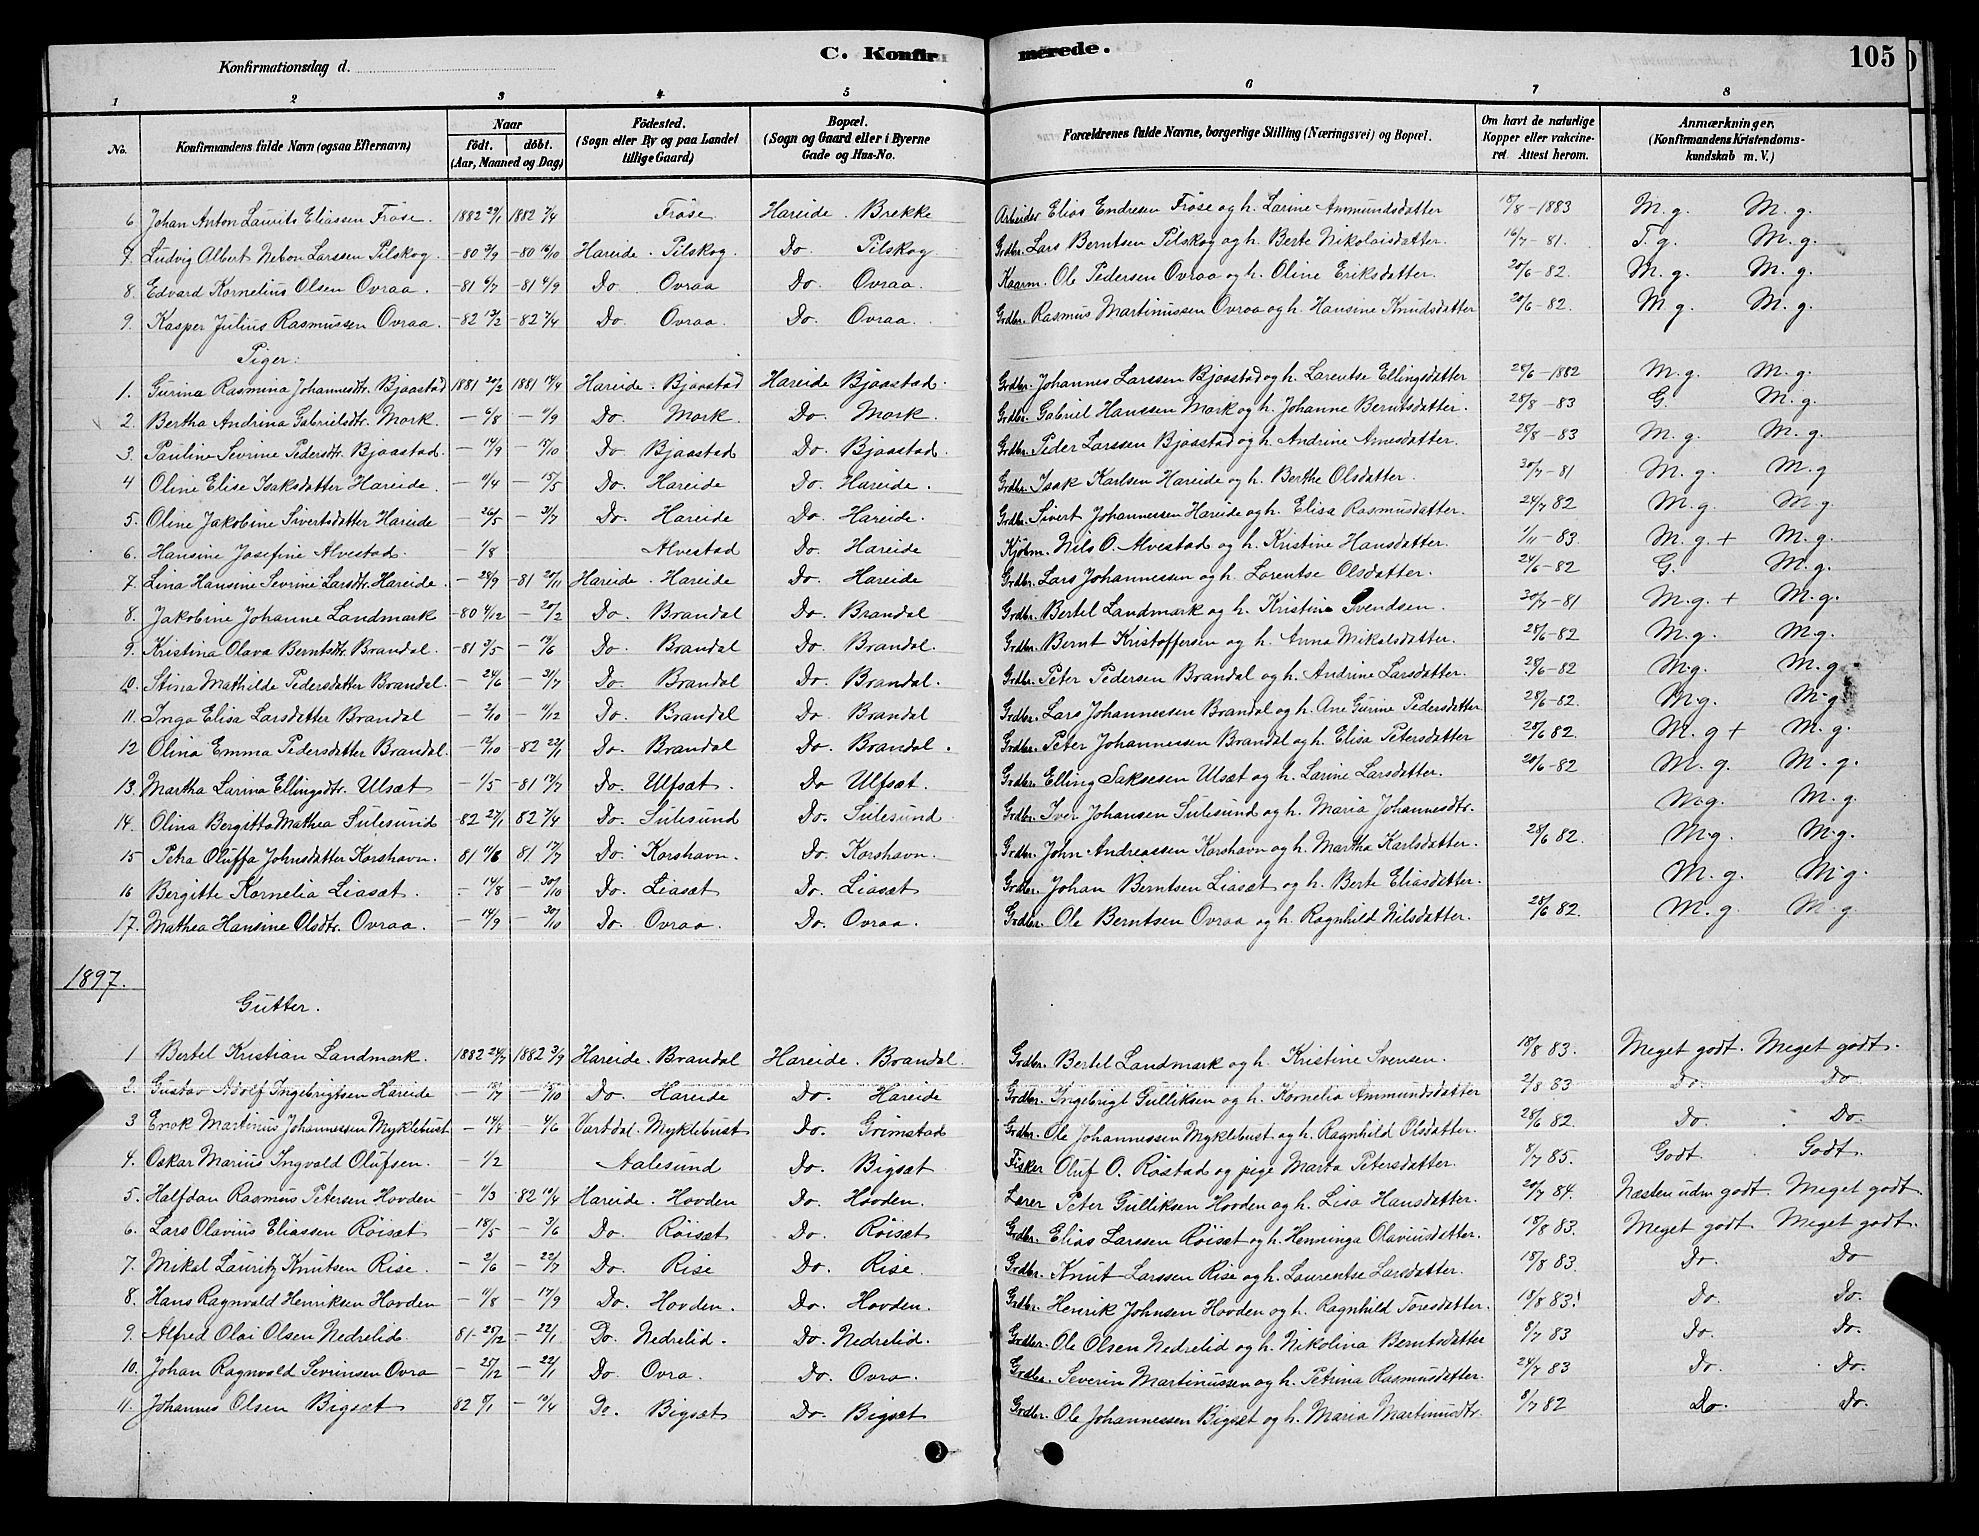 C. Konfirmerede.
105
Konfirmationsdag d.
1 2 3 4 5 6 7 8
No. Konfirmandens fulde Navn (ogsaa Efternavn) Naar født. døbt. (Aar, Maaned og Dag) Födested. (Sogn eller By og paa Landet tillige Gaard) Bopæl. (Sogn og Gaard eller i Byerne Gade og Hus-No. Forældrenes fulde Navne, borgerlige Stilling (Næringsvei) og Bopæl. Om havt de naturlige Kopper eller vakcineret Attest herom. Anmærkninger. (Konfirmandens Kristendomskundskab m. V.)
6 Johan Anton Laurits Eliassen Fröse. 1882 29/1 1882 7/4 Fröse Hareide. Brekke Arbeider Elias Endresen Fröse og h. Larine Ammundsdatter 18/8-1883 M.g. M.g.
7. Ludvig Albert Nebon Larssen Pilskog. -80 3/9 -80 16/10 Hareide. Pilskog. Do Pilskog Grdbr. Lars Berntsen Pilskog og h. Berte Nikolaisdatter. 16/7-81. T.g. M.g.
8. Edvard Kornelius Olsen Ovraa. -81 6/7 -81 4/9 Do Ovraa Do. Ovraa. Kaarm. Ole Pedersen Ovraa og h. Oline Eriksdatter. 20/6-82. M.g. M.g.
9. Kasper Julius Rasmussen Ovraa. -82 13/2 -82 7/4 Do. Ovraa. Do. Ovraa. Grdbr. Rasmus Martinussen Ovraa og h. Hansine Knudsdatter 20/6-82. M.g. M.g.
Piger:
1. Gurina Rasmina Johannesdtr. Bjaastad 1881 20/2 1881 14/4 Hareide. Bjaastad Hareide Bjaastad. Grdbr. Johannes Larssen Bjaastad og h. Larentse Ellingsdatter 28/6-1882 M.g. M.g.
2 Bertha Andrina Gabrielsdtr. Mork. - 6/8 - 11/9 Do Mork. Do. Mork. Grdbr. Gabriel Hanssen Mork og h. Johanne Berntsdatter. 28/8-83 G. M.g.
3. Pauline Sevrine Pedersdtr. Bjaastad. - 14/9 - 15/10 Do Bjaastad Do. Bjaastad. Grdbr. Peder Larssen Bjaastad og h. Andrine Arnesdatter. 28/8-83 M.g. M.g.
4 Oline Elise Isaksdatter Hareide. - 11/4 - 15/5 Do. Hareide Do. Hareide. Grdbr. Isak Karlsen Hareide og h. Berthe Olsdatter. 30/7-81 M.g. M.g
5. Oline Jakobine Sivertsdatter Hareide - 26/5 - 31/7 Do. Hareide Do. Hareide. Grdbr. Sivert Johannessen Hareide og h. Elisa Rasmusdatter. 24/7 82 M.g. M.g.
6. Hansine Josefine Alvestad. - 1/8 Alvestad Do. Hareide Kjöbm. Nils O. Alvestad og h. Kristine Hansdatter. 1/11-83. M.g. + M.g.
7. Lina Hansine Sevrine Larsdtr. Hareide. - 28/9 -81 20/11 Hareide. Hareide Do. Hareide Grdbr. Lars Johannessen og h. Lorentse Olsdatter. 24/6-82 G. M.g.
8. Jakobine Johanne Landmark -80 4/12 - 20/2 Do. Brandal Do. Brandal Grdbr. Bertel Landmark og h. Kristine Svendsen. 30/7-81 M.g. + M.g.
9. Kristina Olava Berntsdtr. Brandal. -81 3/5 - 19/6 Do. Brandal Do. Brandal. Grdbr. Bernt Kristoffersen og h. Anna Mikalsdatter. 28/6-82 M.g. M.g.
10. Stina Mathilde Pedersdatter Brandal. - 24/6 - 31/7 Do. Brandal Do. Brandal. Grdbr. Peter Pedersen Brandal og h. Andrine Larsdatter. 28/6-82 M.g. M.g.
11. Inga Elisa Larsdatter Brandal - 2/10 - 11/12 Do. Brandal Do. Brandal Grdbr. Lars Johannessen Brandal og h. Ane Gurine Pedersdatter 28/6-82. M.g. M.g
12 Olina Emma Pedersdatter Brandal. - 12/10 -82 22/1 Do. Brandal Do. Brandal. Grdbr. Peter Johannessen Brandal og h. Elisa Petersdatter 28/6 82. M.g + M.g.
13. Martha Larina Ellingsdtr. Ulsæt - 1/5 -81 17/7 Do. Ulfsæt. Do Ulfsæt. Grdbr. Elling Saksesen Ulsæt og h. Larine Larsdatter. 20/6-82 M.g. M.g.
14. Olina Bergitta Mathea Sulesund -82 27/1 82 7/4 Do. Sulesund Do. Sulesund. Grdbr. Iver Johansen Sulesund og h. Maria Johannesdtr. M.g. M.g.
15 Petra Oluffa Johnsdatter Korshavn. 81 11/6 81. 17/7 Do. Korshavn. Do. Korshavn. Grdbr. John Andreassen Korshavn og h. Martha Karlsdatter. 28/6 82. M.g. M.g.
16 Bergitte Kornelia Liasæt. - 14/8 - 30/10 Do. Liasæt Do. Liasæt Grdbr. Johan Berntsen Liasæt og h. Berte Eliasdatter. M.g. M.g.
17. Mathea Hansine Olsdtr. Ovraa. - 14/9 - 30/10 Do. Ovraa. Do. Ovraa. Grdbr. Ole Berntsen Ovraa og h. Ragnhild Nilsdatter. 28/6 82. M.g. M.g
1897.
Gutter.
1 Bertel Kristian Landmark. 1882 24/7 1882 3/9 Hareide. Brandal Hareide. Brandal. Grdbr. Bertel Landmark og h. Kristine Svensen. 18/8 83. Meget godt. Meget godt.
2. Gustav Adolf Ingebrigtsen Hareide - 18/7 - 15/10 Do. Hareide Do. Hareide Grdbr. Ingebrigt Gulliksen og h. Kornelia Ammundsdatter 2/8 83 Do. Do
3 Enok Martinus Johannessen Myklebust - 14/4 - 4/6 Vartdal. Myklebust Do. Grimstad Grdbr. Ole Johannessen Myklebust og h. Ragnhild Olsdatter. 28/6 82. Do. Do.
4. Oskar Marius Ingvald Olufsen. - 1/2 Aalesund Do. Bigsæt Fisker Oluf O. Röstad og pige Marta Petersdatter. 8/7 85. Godt Godt.
5. Halfdan Rasmus Petersen Hovden - 11/3 82 10/4 Hareide. Hovden Do. Hovden. Lærer Peter Gulliksen Hovden og h. Lisa Hansdatter. 20/7 84. Næsten udm godt. Meget godt
6. Lars Olavius Eliassen Röisæt - 18/5 - 3/6 Do. Röisæt Do. Röisæt Grdbr. Elias Larssen Röisæt og h. Henninga Olaviusdatter. 18/8 83. Meget godt Meget godt.
7. Mikal Lauritz Knutsen Rise. - 2/6 - 22/7 Do. Rise Do. Rise. Grdbr. Knut Larssen Rise og h. Laurentse Larsdatter. 18/8 83. Do. Do
8. Hans Ragnvald Henriksen Hovden - 11/8 - 17/9 Do. Hovden. Do. Hovden. Grdbr. Henrik Johnsen Hovden og h. Ragnhild Toresdatter. 18/8 83. Do. Do.
9. Alfred Olai Olsen Nedrelid. 81- 25/12 - 22/1 Do. Nedrelid. Do. Nedrelid. Grdbr. Ole Olsen Nedrelid og h. Nikolina Berntsdatter 8/7 83 Do. Do.
10. Johan Ragnvald Sevrinsen Ovra - 25/12 - 22/1 Do. Ovra. Do. Ovra. Grdbr. Severin Martinussen og h. Petrina Rasmusdatter. 24/7 83 Do. Do.
11. Johannes Olsen Bigsæt 82 /1 - 10/4 Do. Bigsæt Do. Bigsæt Grdbr. Ole Johannessen Bigsæt og h. Maria Martinusdtr. 8/7 82 Do. Do.